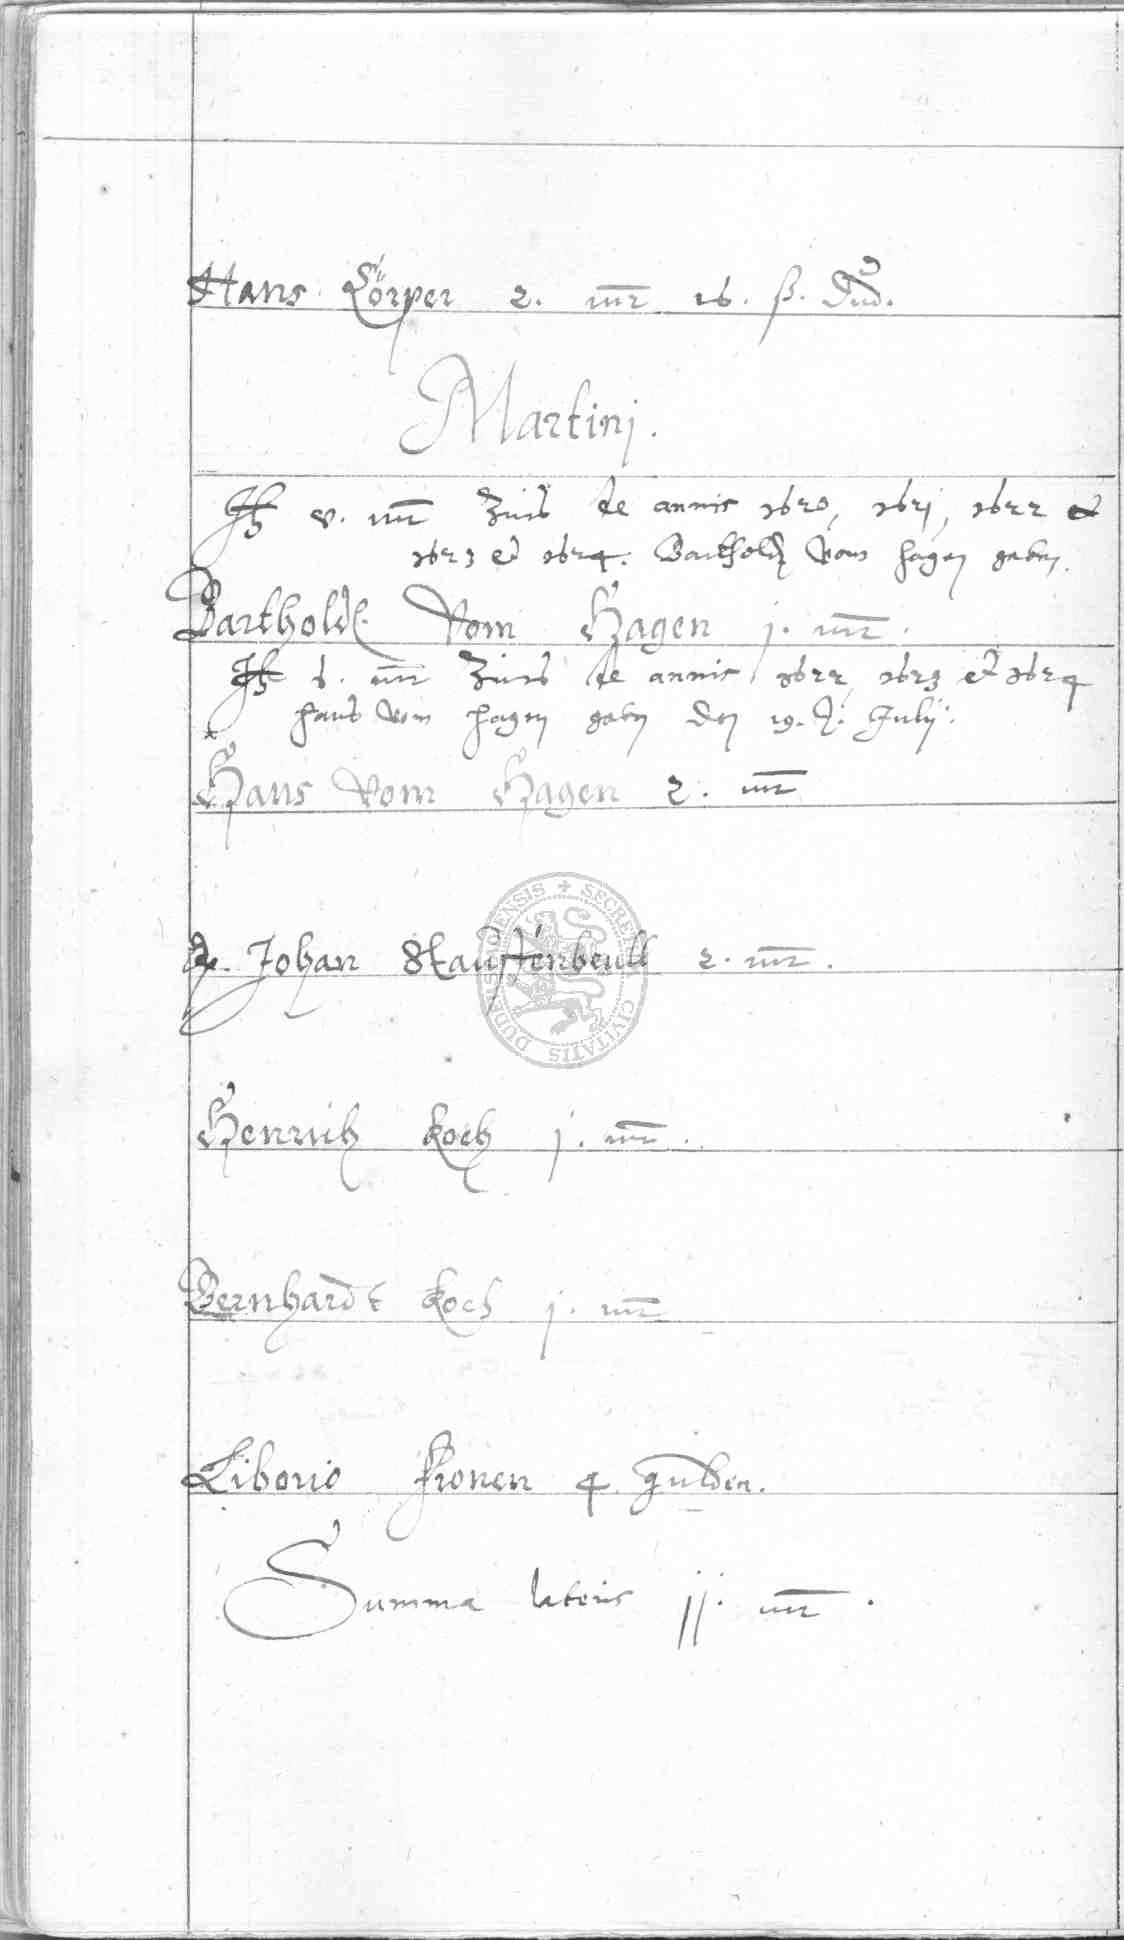 Hans Körper 2. mr 16. ß. Dud.
Martinj.
It v. mr Zins de annis 1620, 1621, 1622 et
1623 et 1624. Barthold Vom Hagen geben.
Barthold Vom Hagen j. mr.
It 6. mr Zins de annis 1622, 1623 et 1624
Hans Vom Hagen geben den 19. Julij.
Hans Vom Hagen 2. mr
Johan 2. mr.
Henrich Koch j. mr.
Bernhardt Koch j. mr
Liborio Kronen 4 gulden.
Summa lateris jj. mr.
SECRET CIVITATIS DUDERSTADENSIS